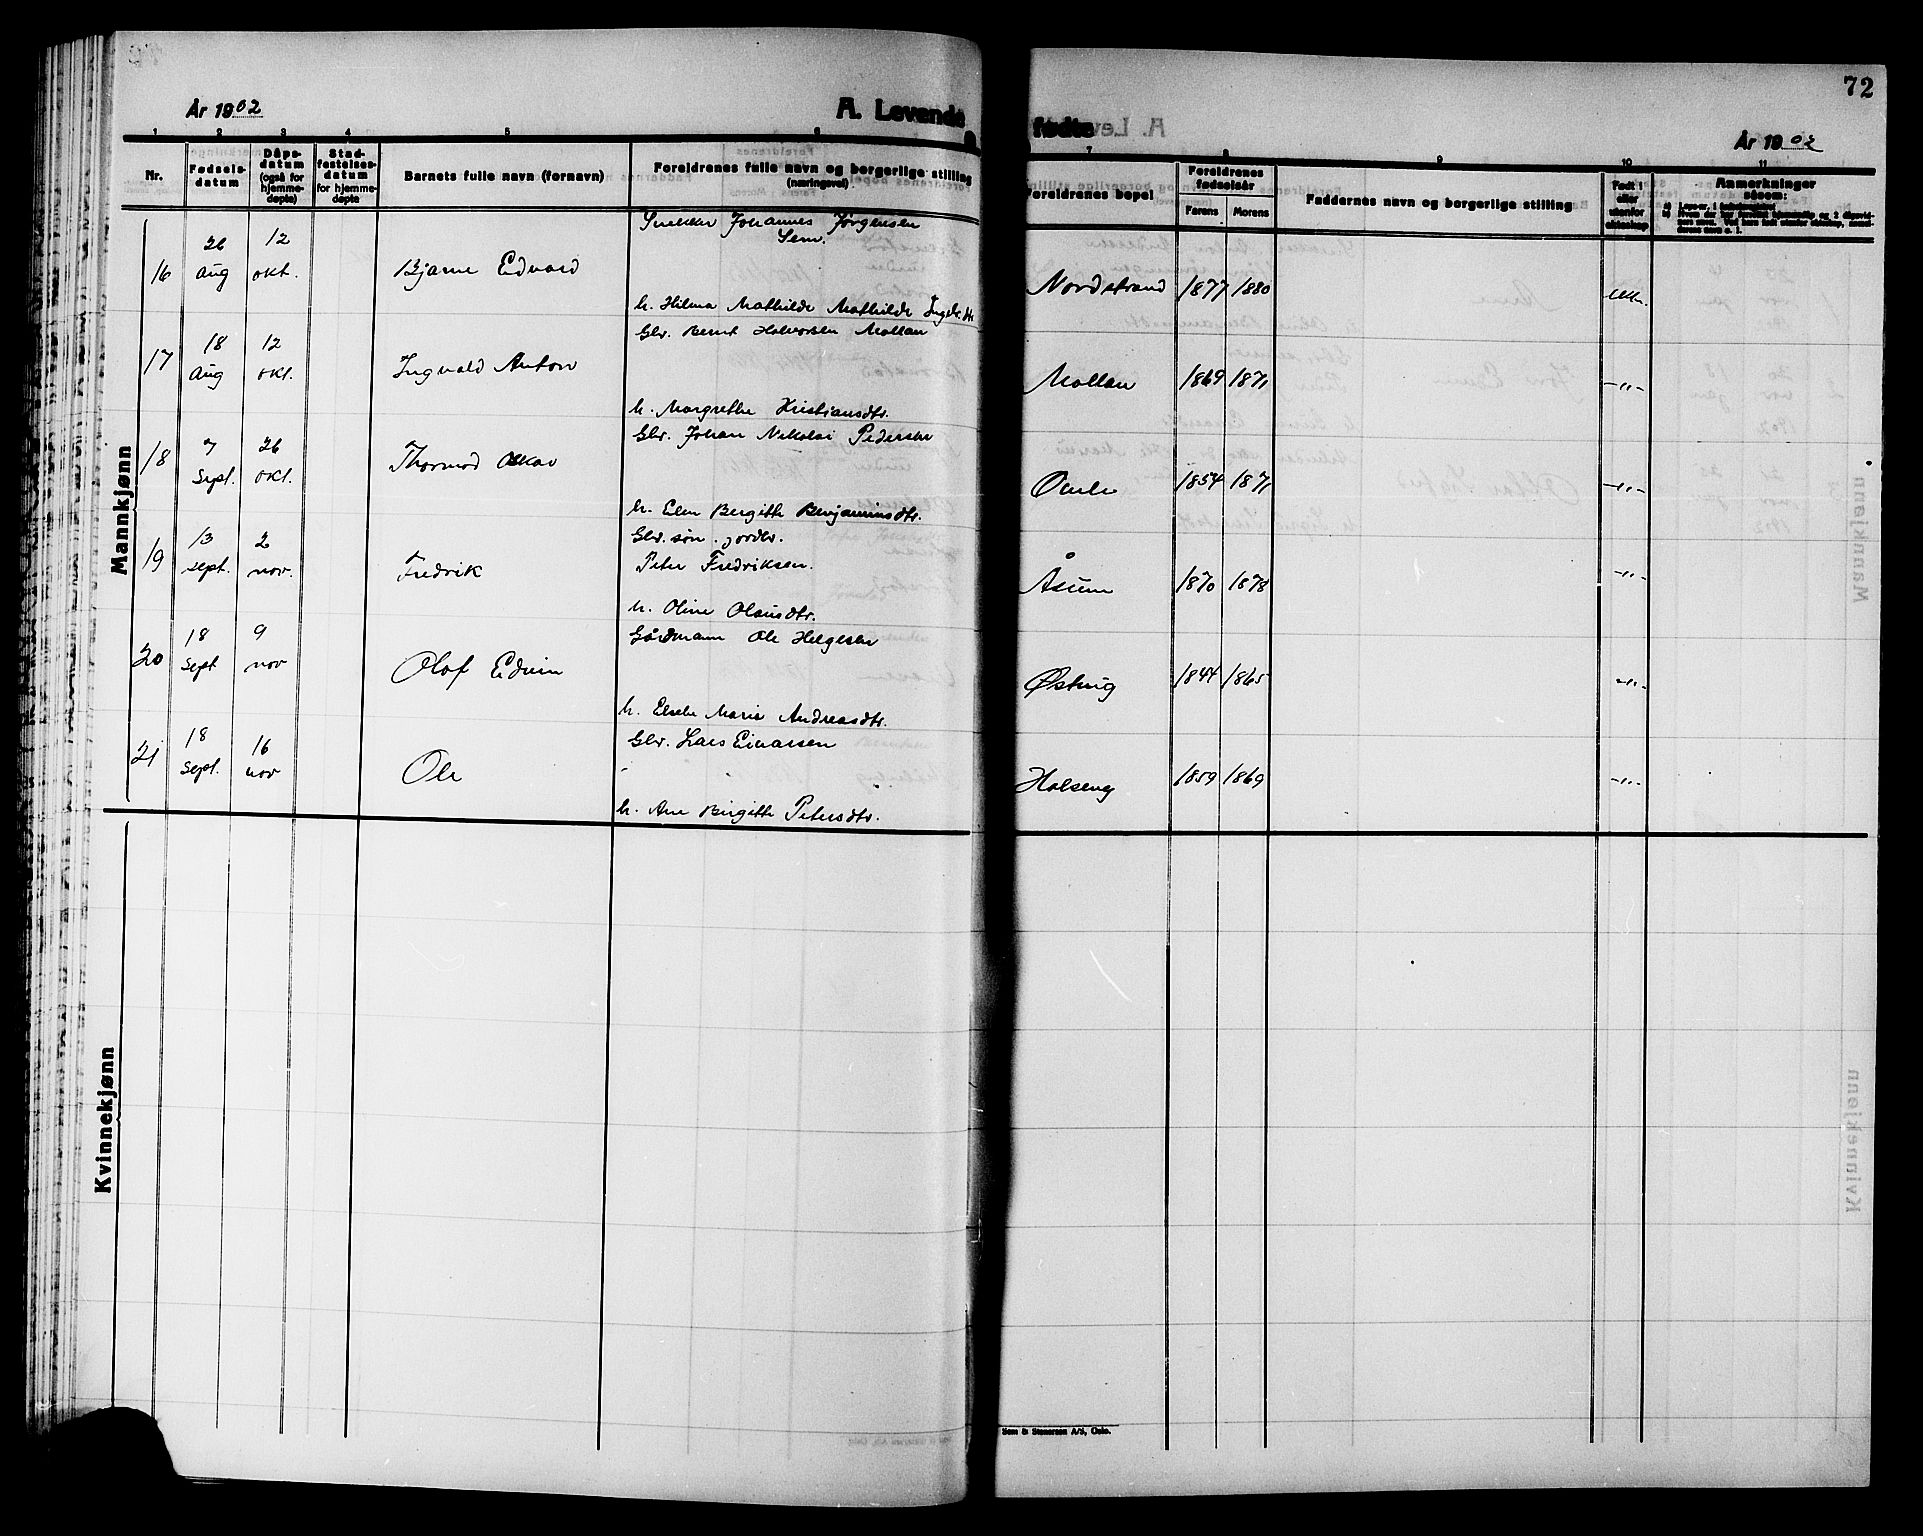 72
År 1902
A. Levende fødte
År 1902
1 2 3 4 5 6 7 8 9 10 11
Nr.
Fødselsdatum
Dåpsdatum (også for hjemmedøpte)
Stadfestelsesdatum for hjemmedøpte
Barnets fulle navn (fornavn)
Foreldrenes fulle navn og borgerlige stilling (næringsvei)
Foreldrenes bopel
Foreldrenes fødselsår
Farens Morens
Faddernes navn og borgerlige stilling
Født i eller utenfor ekteskap
Anmerkninger såsom:
Mannkjønn
Snekker Johannes Jørgensen
Sem.
16 26 Aug 12 okt. Bjarne Edvard Nordstrand 1877 1880 ekte.
h. Hilma Mathilde Mathilde Ingebr.dtr.
Gbr. Bernt Halvorsen Mollan
17 18 Aug 12 okt. Ingvald Anton Mollan 1869 1871 -"-
h. Margrethe Kristiansdtr.
Gbr. Johan Nikolai Pedersen
18 7 Sept. 26 okt. Thormod Oskar 1854 1871 -"-
h. Elen Bergitte Benjaminsdtr.
Gbr. søn. jordbr.
19 13 sept. 2 nov. Fredrik Peter Fredriksen. Åsum 1870 1878 -"-
h. Oline Olausdtr.
Gårdmann Ole Helgesen
20 18 Sept 9 nov Olaf Edvin Østvig 1844 1865 -"-
h. Elsebe Marie Andreasdtr.
Gbr. Lars Einarsen
21 18 Sept. 16 nov Ole Halseng 1859 1869 -"-
h. Ane Birgitte Petersdtr.
Kvinnekjønn
Sem & Stenersen A/S, Oslo.